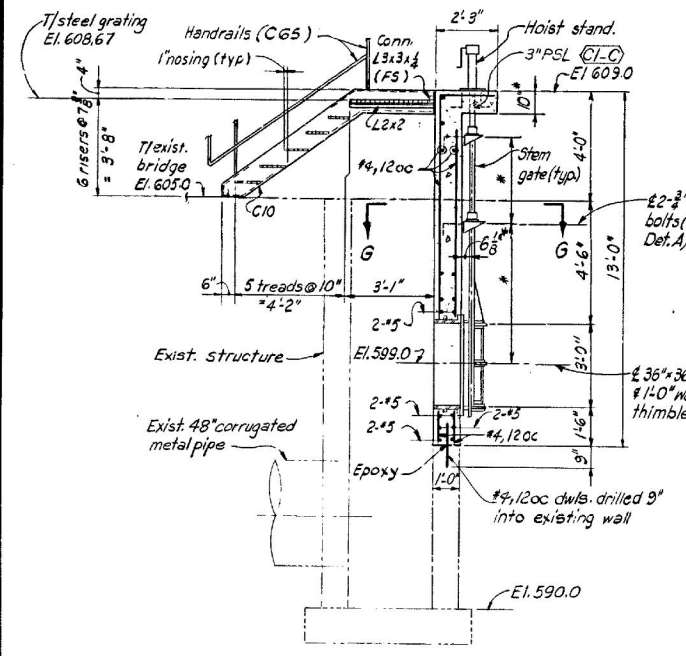 T/steel grating
El. 608.67
Handrails (CG5)
1"nosing (typ)
Conn.
L3x3x1/4
(FS)
2'-3"
Hoist stand.
3"PSL C1-C
El 609.0
4"
6 risers@7 3/8"
= 3'-8"
L2x2
10"*
4'-0"
T/exist.
bridge
El. 605.0
#4,12oc
Stem
gate(typ.)
*
C10
G
G
6 1/8"*
*
℄2-3/4"
bolts(
Det.A)
4'-6"
13'-0"
6"
5 treads@10"
=4'-2"
3'-1"
2-#5
Exist. structure
El.599.0
3'-0"
℄ 36"x36
¢ 1'-0" w
thimble
2-#5
2-#5
2-#5
#4,12oc
1'-6"
Exist. 48"corrugated
metal pipe
Epoxy
1'-0"
9"
#4,12oc dwls. drilled 9"
into existing wall
El.590.0